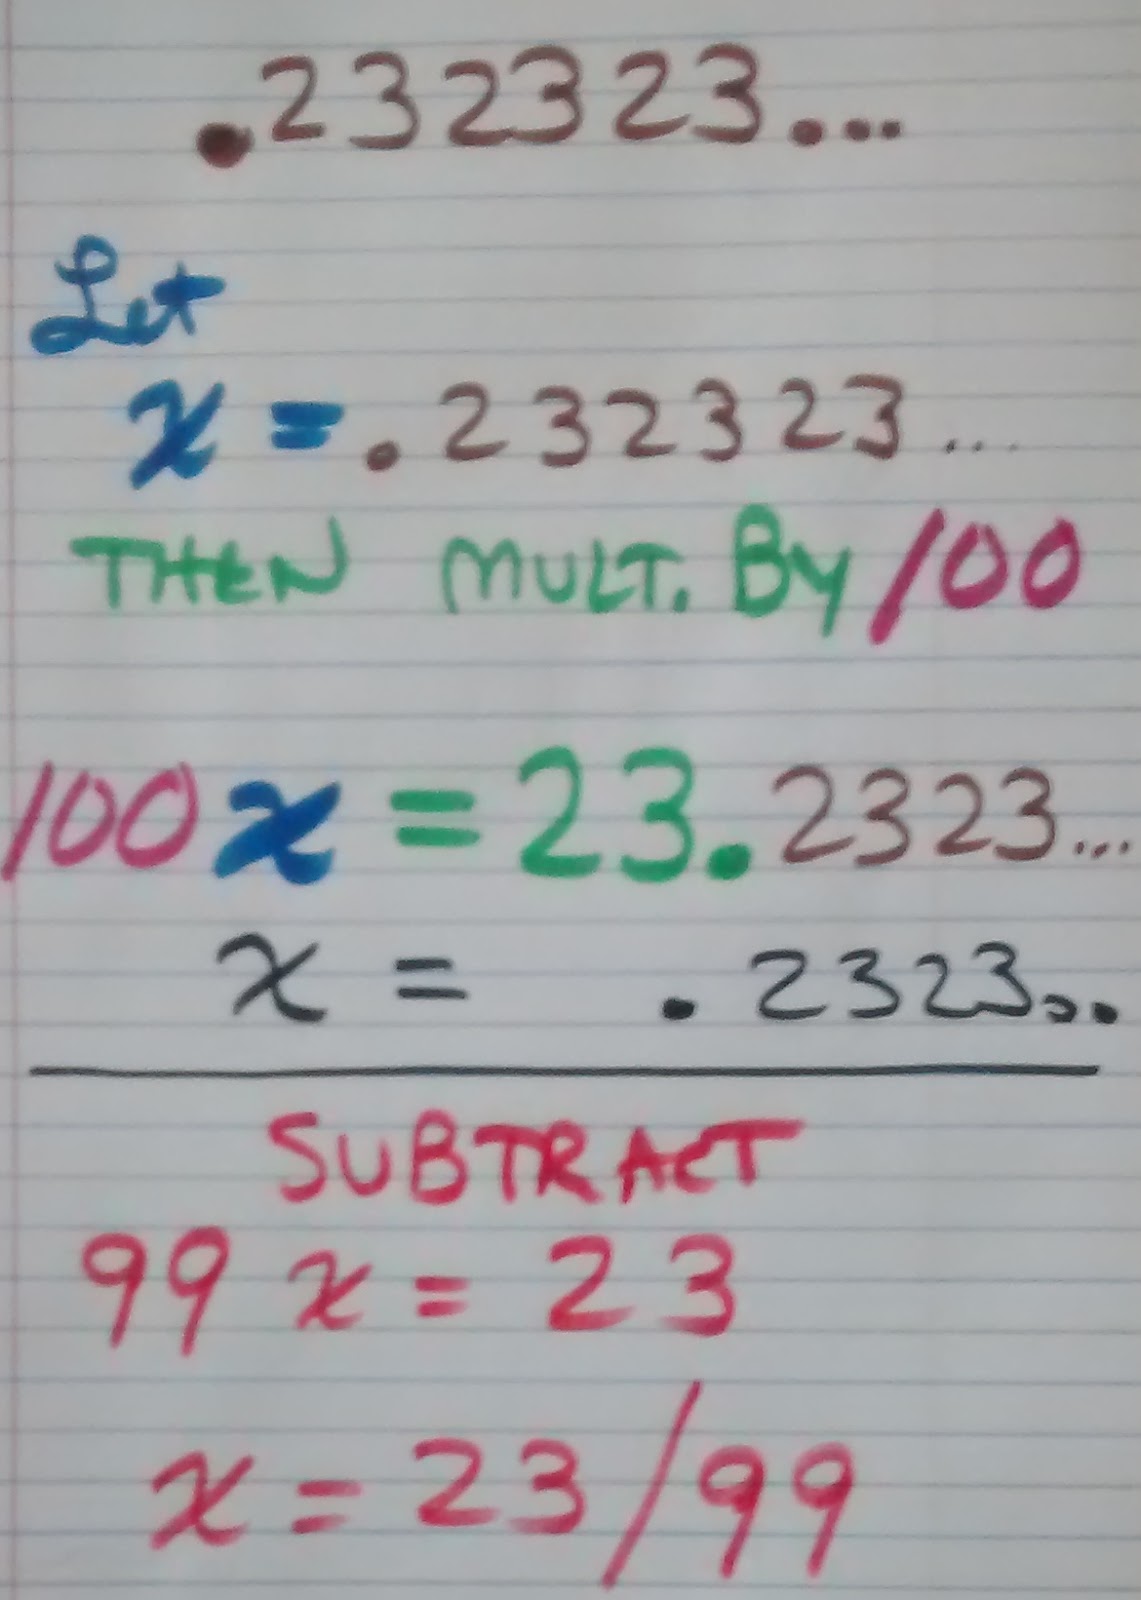 .232323...
Let
x = .232323...
THEN MULT. By 100
100x = 23.2323...
x = .2323...
SUBTRACT
99x = 23
x = 23/99